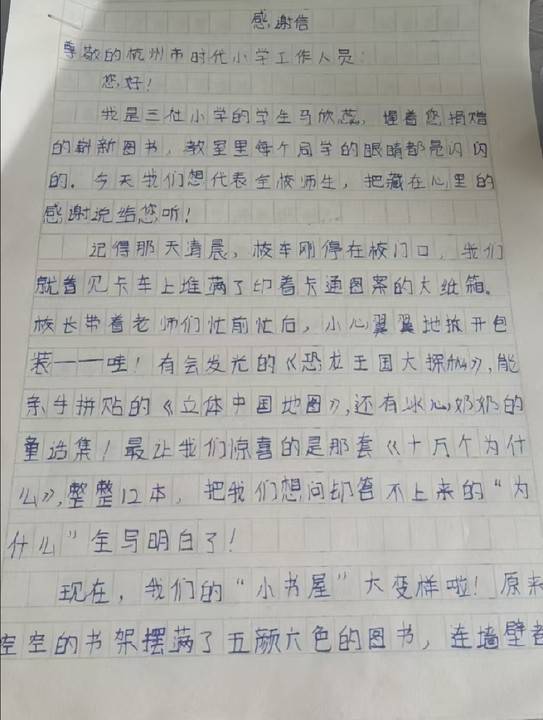 感谢信
尊敬的杭州市时代小学工作人员:
您好!
我是三社小学的学生马欣蕊,握着您捐赠
的崭新图书,教室里每个同学的眼睛都是闪闪
的。今天我们想代表全校师生,把藏在心里的
感谢说给您听!
记得那天清晨,校车刚停在校门口,我们
就看见卡车上堆满了印着卡通图案的大纸箱。
校长带着老师们忙前忙后,小心翼翼地拆开包
装——哇!有会发光的《恐龙王国大探秘》,能
亲手拼贴的《立体中国地图》,还有冰心奶奶的
童话集!最让我们惊喜的是那套《十万个为什
么》,整整12本,把我们想问却答不上来的“为
什么”全写明白了!
现在,我们的“小书屋”大变样啦!原来
空空的书架摆满了五颜六色的图书,连墙壁都